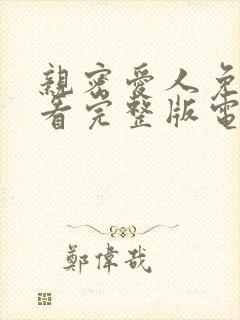 親密愛人免
看完整版電
鄭偉哉